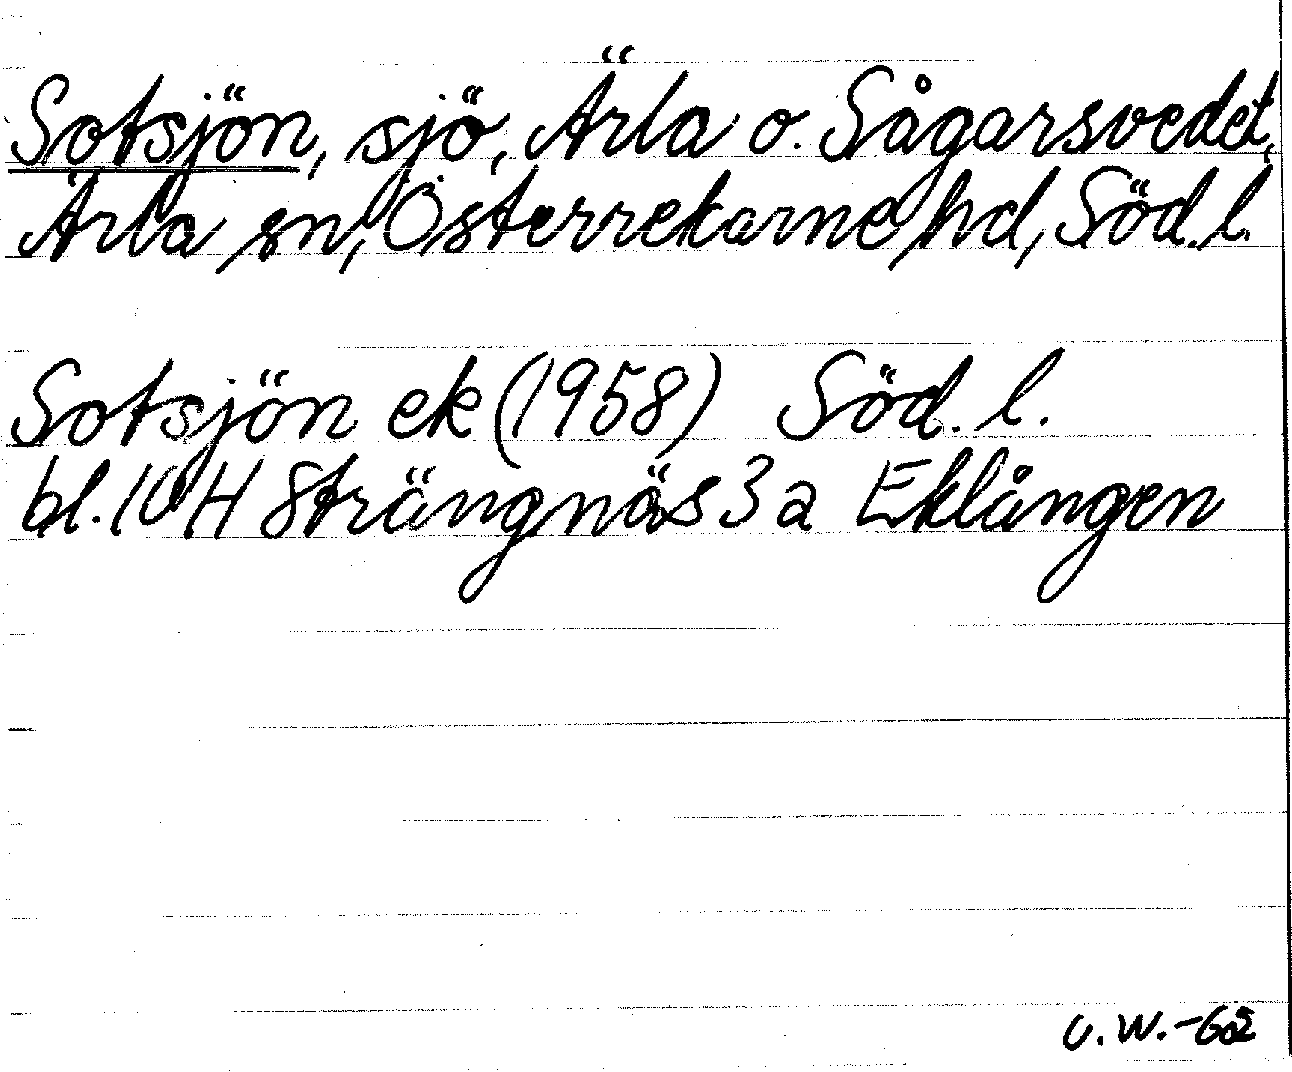 Sotsjön, sjö, Ärla o. Sågarsvedet,
Ärla sn, Österrekarne hd, Söd. l.
Sotsjön ek (1958) Söd. l.
bl. 10 H Strängnäs 3 a Eklången